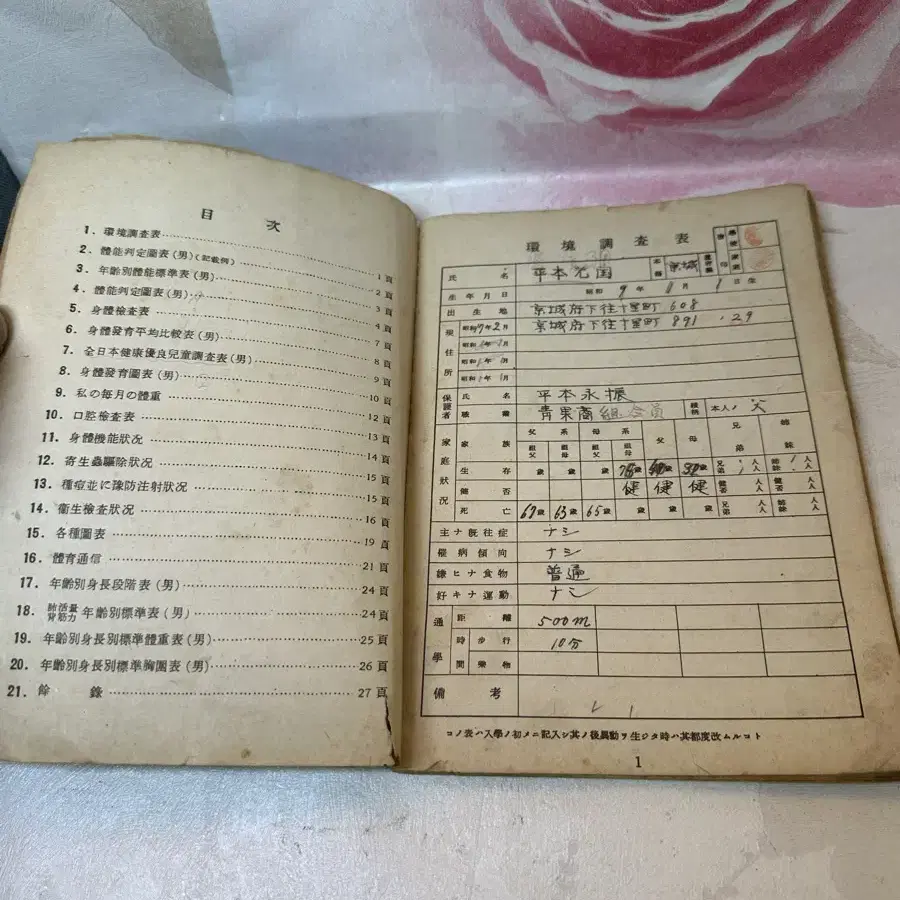 目次
1. 環境調査表 1頁
2. 體能判定圖表(男)(記載例) 2頁
3. 年齡別體能標準表(男) 3頁
4. 體能判定圖表(男) 4頁
5. 身體檢査表 7頁
6. 身體發育平均比較表(男) 8頁
7. 全日本健康優良兒童調査表(男) 9頁
8. 身體發育圖表(男) 10頁
9. 私の毎月の體重 12頁
10. 口腔檢査表 13頁
11. 身體機能狀況 14頁
12. 寄生蟲驅除狀況 15頁
13. 種痘並に豫防注射狀況 15頁
14. 衞生檢査狀況 16頁
15. 各種圖表 19頁
16. 體育通信 21頁
17. 年齡別身長段階表(男) 24頁
18. 肺活量背筋力年齡別標準表(男) 24頁
19. 年齡別身長別標準體重表(男) 25頁
20. 年齡別身長別標準胸圍表(男) 26頁
21. 餘錄 27頁
環境調査表
氏名 平本 本籍 京城
生年月日 昭和9年11月1日生
出生地 京城府下往十里町608
現住所 昭和 年2月 京城府下往十里町891.29
昭和 年 月
昭和 年 月
昭和 年 月
保護者 氏名 平本永振
職業 靑果商組合員 續柄 本人ノ父
家庭狀況 家族 父系 祖父 祖母 母系 祖父 祖母 父 母 兄弟 姉妹
生存 歲 歲 歲 歲 歲 歲 兄 人 弟 人 姉 人 妹 人
健否 健 健 健 健否 健否
死亡 67歲 63歲 65歲 歲 歲 歲 兄 人 弟 人 姉 人 妹 人
主ナ旣往症 ナシ
罹病傾向 ナシ
嫌ヒナ食物 普通
好キナ運動 ナシ
通學 距離 500m
時間 步行 10分
乘物
備考
コノ表ハ入學ノ初メニ記入シ其ノ後異動ヲ生ジタ時ハ其都度改ムルコト
1